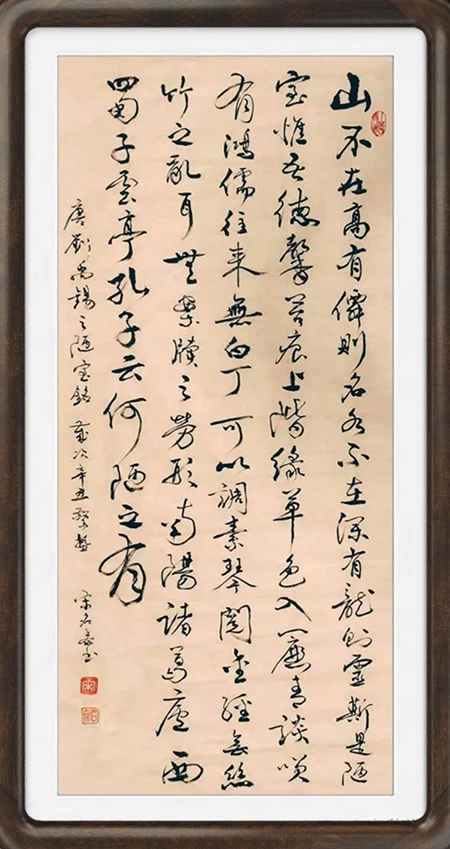 山不在高有仙則名水不在深有龍則靈斯是陋
室惟吾德馨苔痕上階緑草色入簾青談笑
有鴻儒往来無白丁可以調素琴閱金經無絲
竹之亂耳無案牘之勞形南陽諸葛廬西
蜀子雲亭孔子云何陋之有
唐劉禹錫之陋室銘歲次辛丑
宋名家书